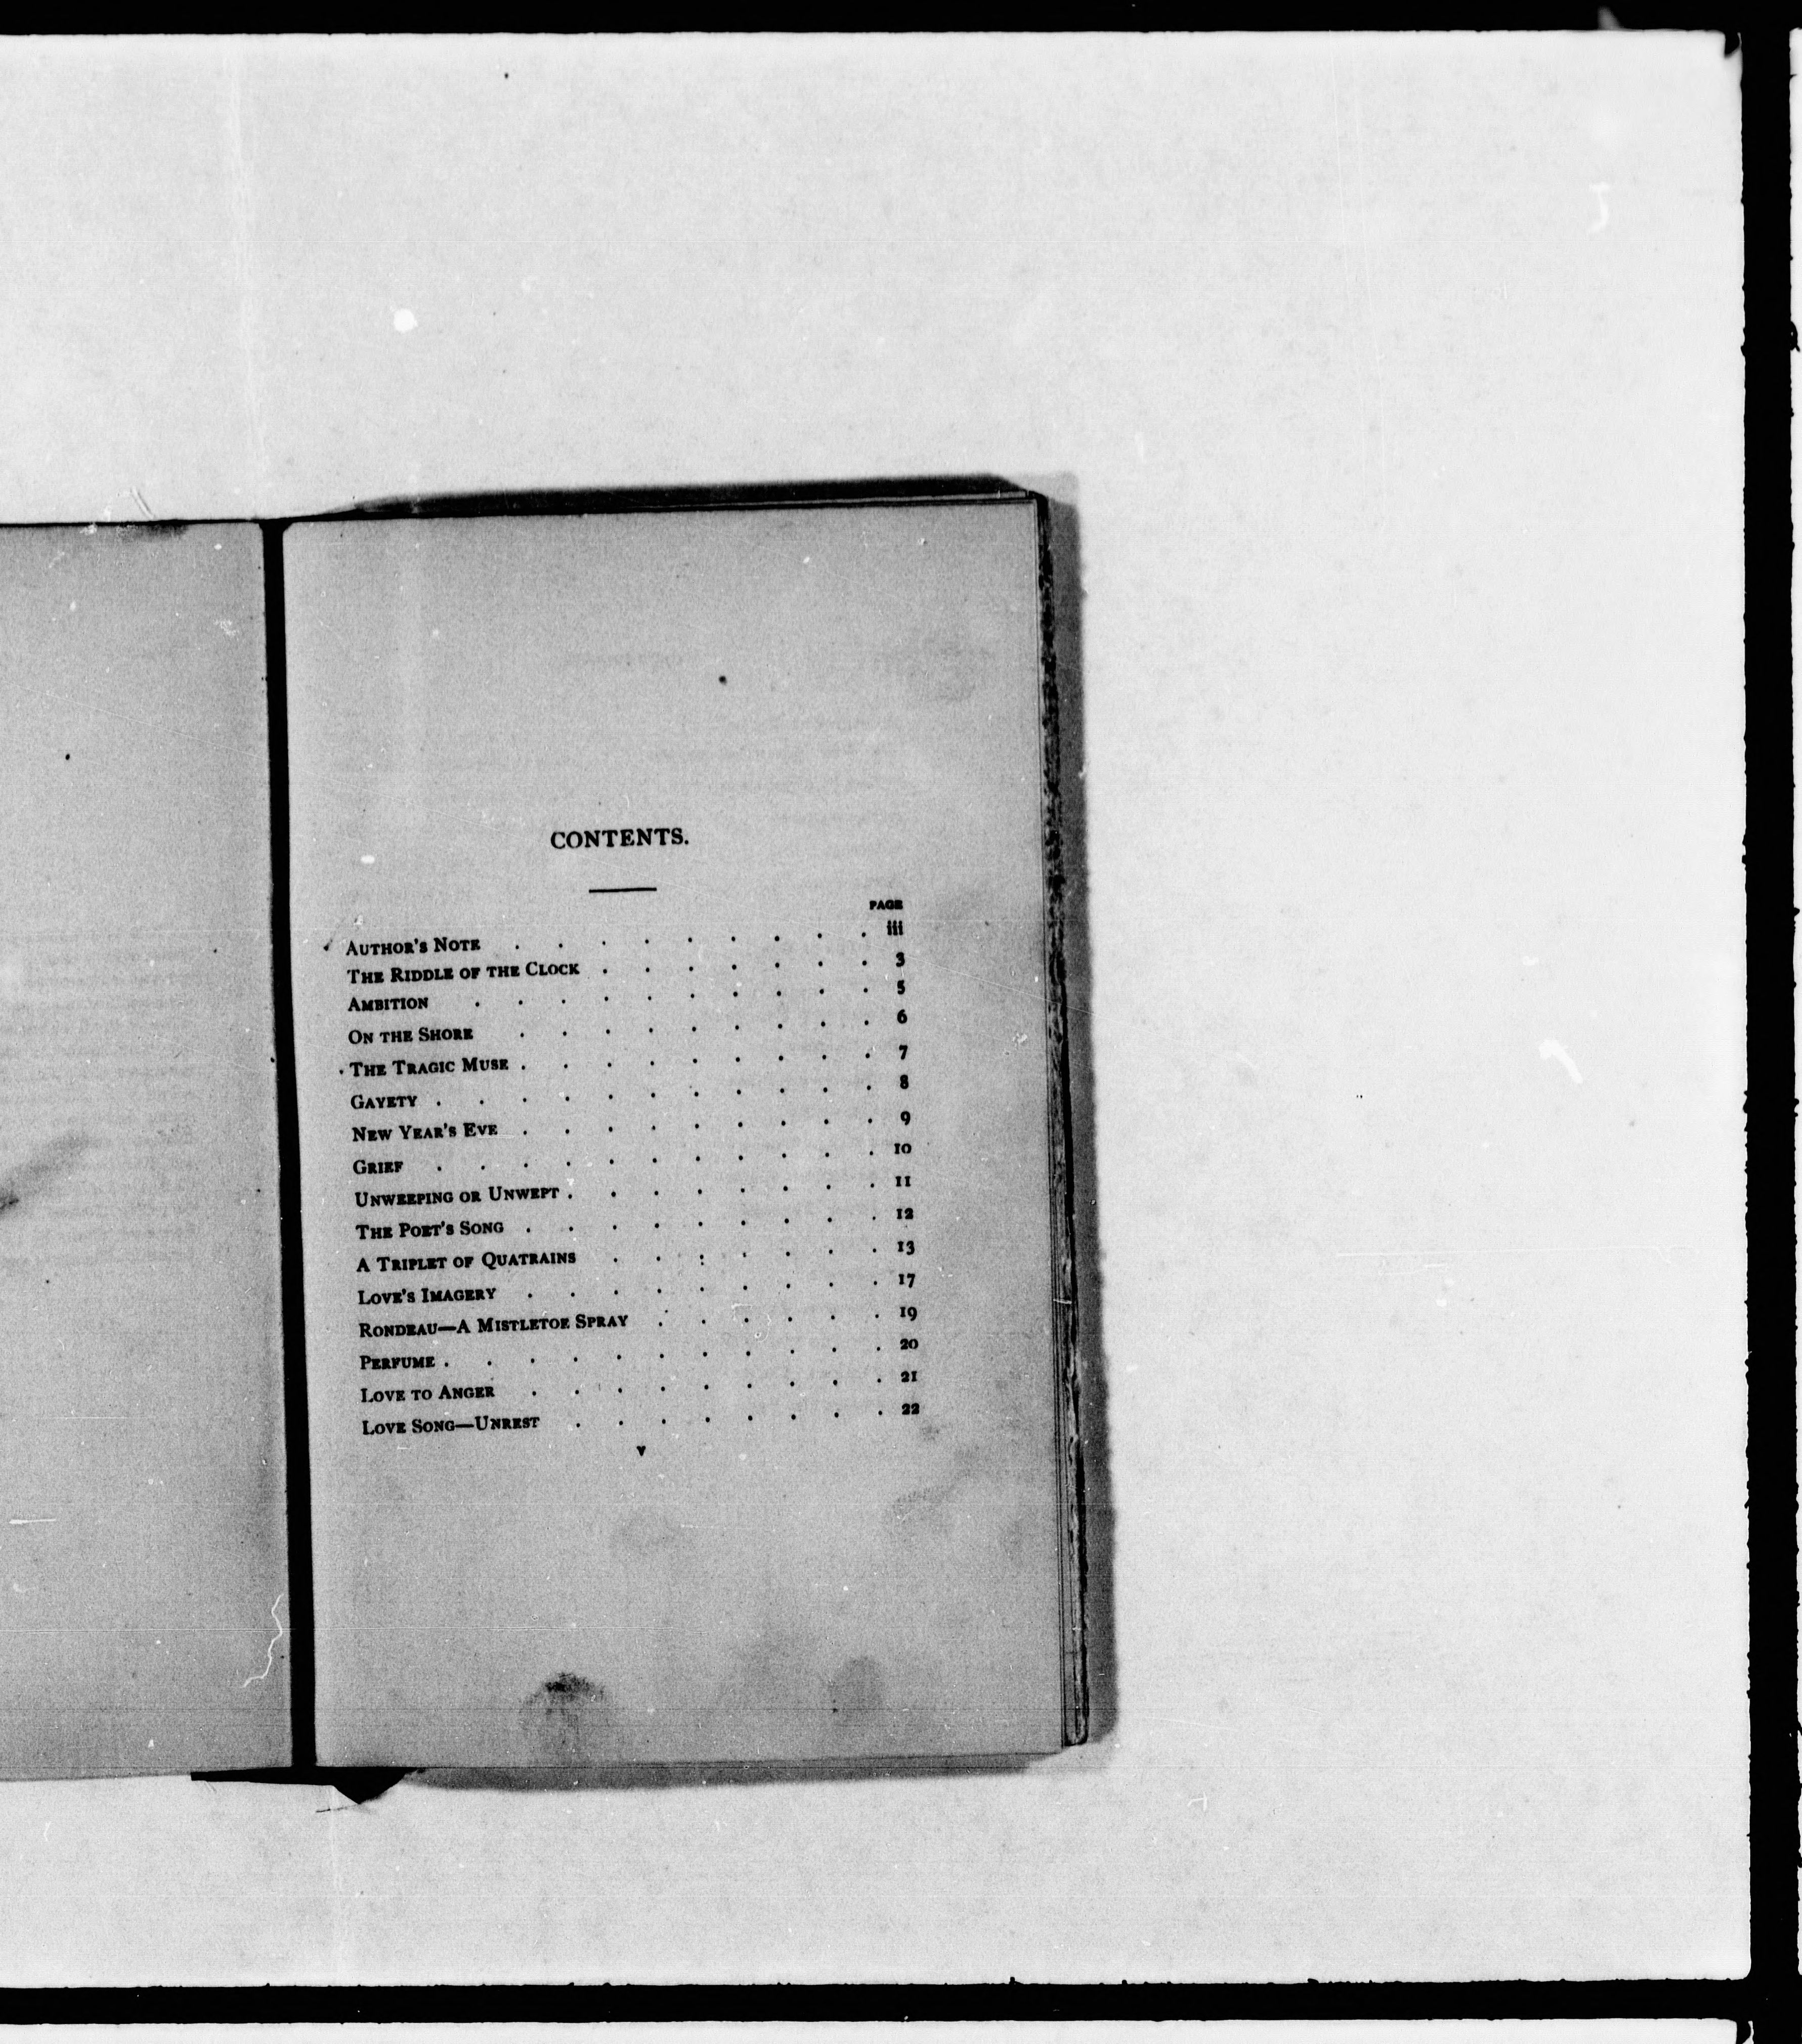 CONTENTS.
PAGE
AUTHOR'S NOTE . . . . . . . . . iii
THE RIDDLE OF THE CLOCK . . . . . . . 3
AMBITION . . . . . . . . . . 5
ON THE SHORE . . . . . . . . . 6
THE TRAGIC MUSE . . . . . . . . . 7
GAYETY . . . . . . . . . . . 8
NEW YEAR'S EVE . . . . . . . . . 9
GRIEF . . . . . . . . . . . 10
UNWEEPING OR UNWEPT . . . . . . . . 11
THE POET'S SONG . . . . . . . . . 12
A TRIPLET OF QUATRAINS . . . . . . . 13
LOVE'S IMAGERY . . . . . . . . . 17
RONDEAU—A MISTLETOE SPRAY . . . . . . 19
PERFUME . . . . . . . . . . . 20
LOVE TO ANGER . . . . . . . . . 21
LOVE SONG—UNREST . . . . . . . . 22
v